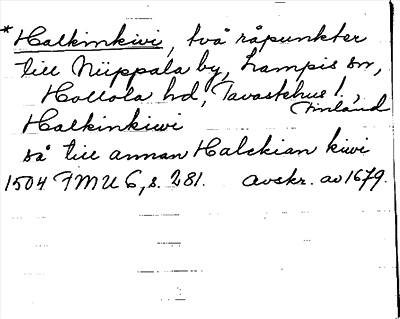 *Halkinkiwi, två råpunkter
till Nüppala by, Lampis sn,
Hollola hd, Tavastehus l.,
Finland
Halkinkiwi
så till annan Halckian kiwi
1504 FMU 6, s. 281. avskr. av 1679.